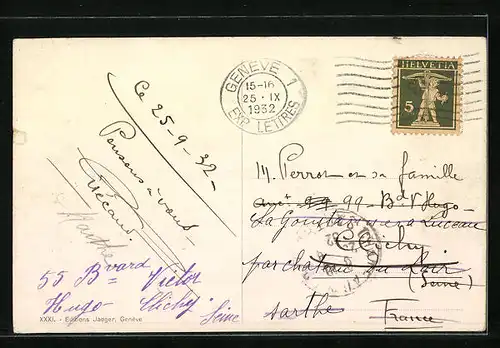 GENEVE 1
15-16
25·IX
1932
EXP. LETTRES
HELVETIA
5
Ce 25-9-32-
Pensons à vous
Marthe
M. Perrot et sa famille
99 Bd V. Hugo
La
Clichy
par Chateau du Loir
(Seine)
sarthe France
55 Bvard Victor
Hugo Clichy
Seine
XXXI. - Editions Jaeger, Genève